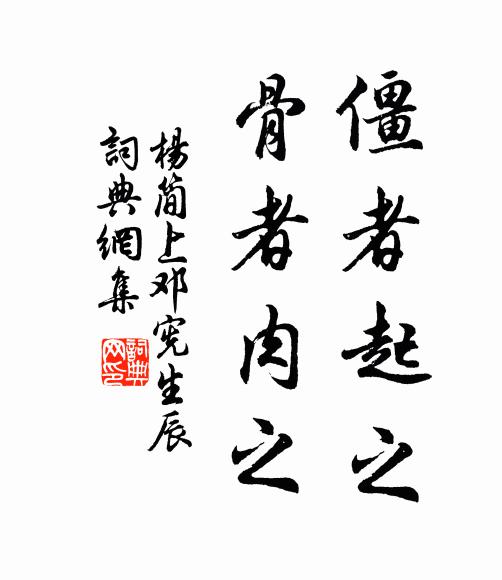 僵者起之
骨者肉之
杨简上邓宪生辰
詞典網集
詞典网印